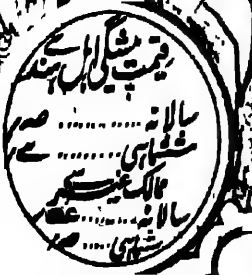 قیمت پیشگی اہل ہند سے
سالانہ ........... صہ
ششماہی ........ سے
ممالک غیر سے
سالانہ .....
ششماہی .....